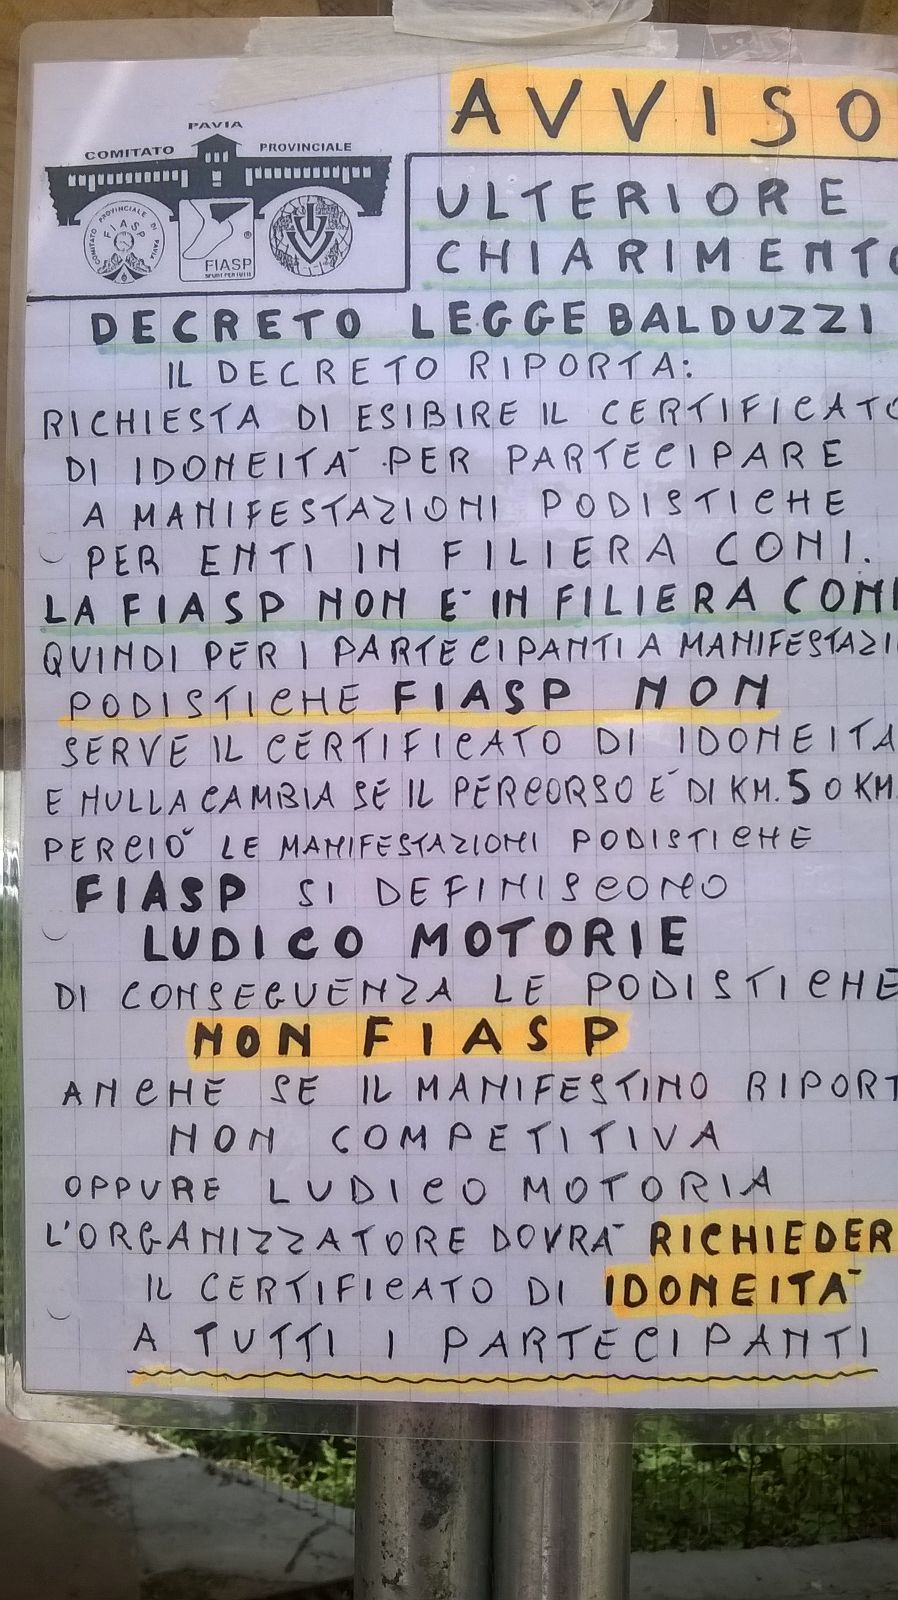 AVVISO
PAVIA
COMITATO PROVINCIALE
COMITATO PROVINCIALE DI PAVIA
FIASP
FIASP
SPORT PER TUTTI
IVV
ULTERIORE
CHIARIMENTO
DECRETO LEGGE BALDUZZI
IL DECRETO RIPORTA:
RICHIESTA DI ESIBIRE IL CERTIFICATO
DI IDONEITA' PER PARTECIPARE
A MANIFESTAZIONI PODISTICHE
PER ENTI IN FILIERA CONI.
LA FIASP NON E' IN FILIERA CONI
QUINDI PER I PARTECIPANTI A MANIFESTAZI
PODISTICHE FIASP NON
SERVE IL CERTIFICATO DI IDONEITA
E NULLA CAMBIA SE IL PERCORSO E' DI KM. 5 O KM.
PERCIO' LE MANIFESTAZIONI PODISTICHE
FIASP SI DEFINISCONO
LUDICO MOTORIE
DI CONSEGUENZA LE PODISTICHE
NON FIASP
ANCHE SE IL MANIFESTINO RIPORT
NON COMPETITIVA
OPPURE LUDICO MOTORIA
L'ORGANIZZATORE DOVRA' RICHIEDER
IL CERTIFICATO DI IDONEITA'
A TUTTI I PARTECIPANTI